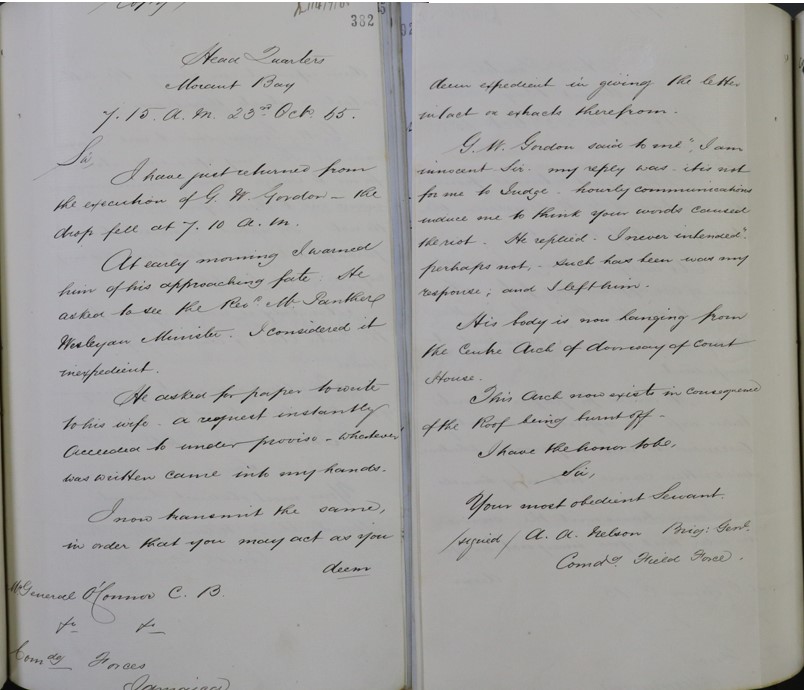 Copy
382
Head Quarters
Morant Bay
7.15. A. M. 23rd Oct. 65.
Sir,
I have just returned from
the execution of G. W. Gordon – the
drop fell at 7.10 A. M.
At early morning I warned
him of his approaching fate. He
asked to see the Revd Mr Panther
Wesleyan Minister. I considered it
inexpedient.
He asked for paper to write
to his wife. a request instantly
acceeded to under proviso – whatever
was written came into my hands.
I now transmit the same,
in order that you may act as you
deem
M General O'Connor C. B.
&c &c
Comdg Forces
Jamaica
deem expedient in giving the letter
intact or extracts therefrom.
G. W. Gordon said to me "I am
innocent Sir. my reply was. it is not
for me to Judge. hourly communications
induce me to think your words caused
the riot. He replied. I never intended"
perhaps not, – Such has been was my
response; and I left him.
His body is now hanging from
the Centre Arch of doorway of Court
House.
This Arch now exists in consequence
of the Roof being burnt off –
I have the honor to be,
Sir,
Your most obedient Servant.
/signed/ A. A. Nelson Brig: Genl.
Comdg Field Force.